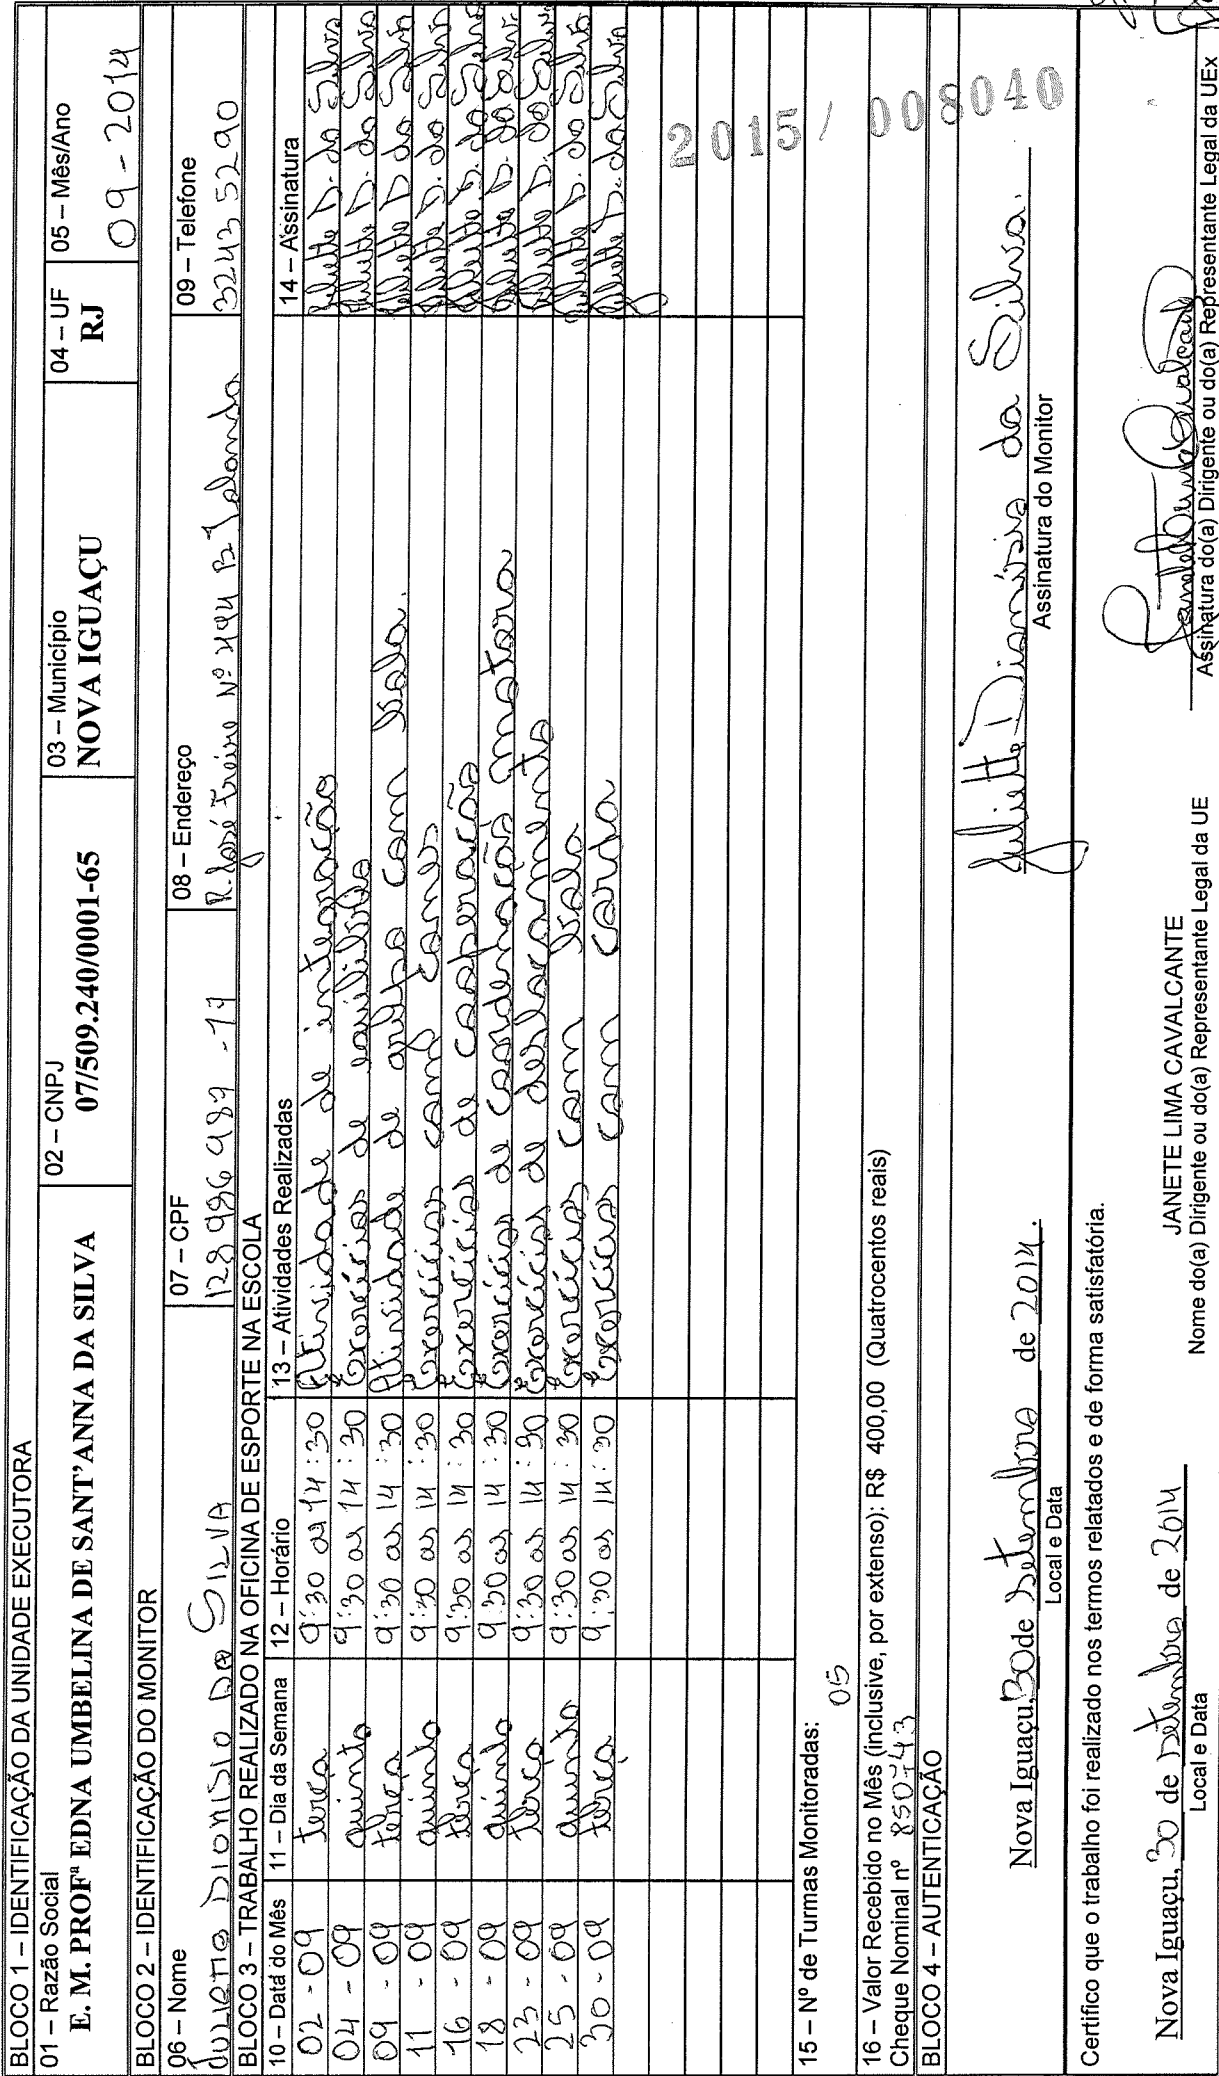 BLOCO 1 – IDENTIFICAÇÃO DA UNIDADE EXECUTORA
01 – Razão Social
E. M. PROFª EDNA UMBELINA DE SANT'ANNA DA SILVA
02 – CNPJ
07/509.240/0001-65
03 – Município
NOVA IGUAÇU
04 – UF
RJ
05 – Mês/Ano
09-2014
BLOCO 2 – IDENTIFICAÇÃO DO MONITOR
06 – Nome
DIONISIO DA SILVA
07 – CPF
08 – Endereço
R. José Nº 494
09 – Telefone
32435290
BLOCO 3 – TRABALHO REALIZADO NA OFICINA DE ESPORTE NA ESCOLA
10 – Data do Mês 11 – Dia da Semana 12 – Horário 13 – Atividades Realizadas 14 – Assinatura
02-09 terça 9:30 as 14:30 Atividade de integração Juliette D. da Silva
04-09 quinta 9:30 as 14:30 Exercícios de equilibrio Juliette D. da Silva
09-09 terça 9:30 as 14:30 Atividade de com bola. Juliette D. da Silva
11-09 quinta 9:30 as 14:30 Exercícios com cones Juliette D. da Silva
16-09 terça 9:30 as 14:30 Exercícios de cooperação Juliette D. da Silva
18-09 quinta 9:30 as 14:30 Exercícios de Coordenação motora Juliette D. da Silva
23-09 terça 9:30 as 14:30 Exercícios de deslocamento Juliette D. da Silva
25-09 quinta 9:30 as 14:30 Exercícios com bola Juliette D. da Silva
30-09 terça 9:30 as 14:30 Exercícios com corda Juliette D. da Silva
2015/008040
15 – Nº de Turmas Monitoradas:
05
16 – Valor Recebido no Mês (inclusive, por extenso): R$ 400,00 (Quatrocentos reais)
Cheque Nominal nº 850743
BLOCO 4 – AUTENTICAÇÃO
Nova Iguaçu, 30 de Setembro de 2014.
Local e Data
Juliette Dionísio da Silva.
Assinatura do Monitor
Certifico que o trabalho foi realizado nos termos relatados e de forma satisfatória.
Nova Iguaçu, 30 de Setembro de 2014
Local e Data
JANETE LIMA CAVALCANTE
Nome do(a) Dirigente ou do(a) Representante Legal da UE
Assinatura do(a) Dirigente ou do(a) Representante Legal da UEx